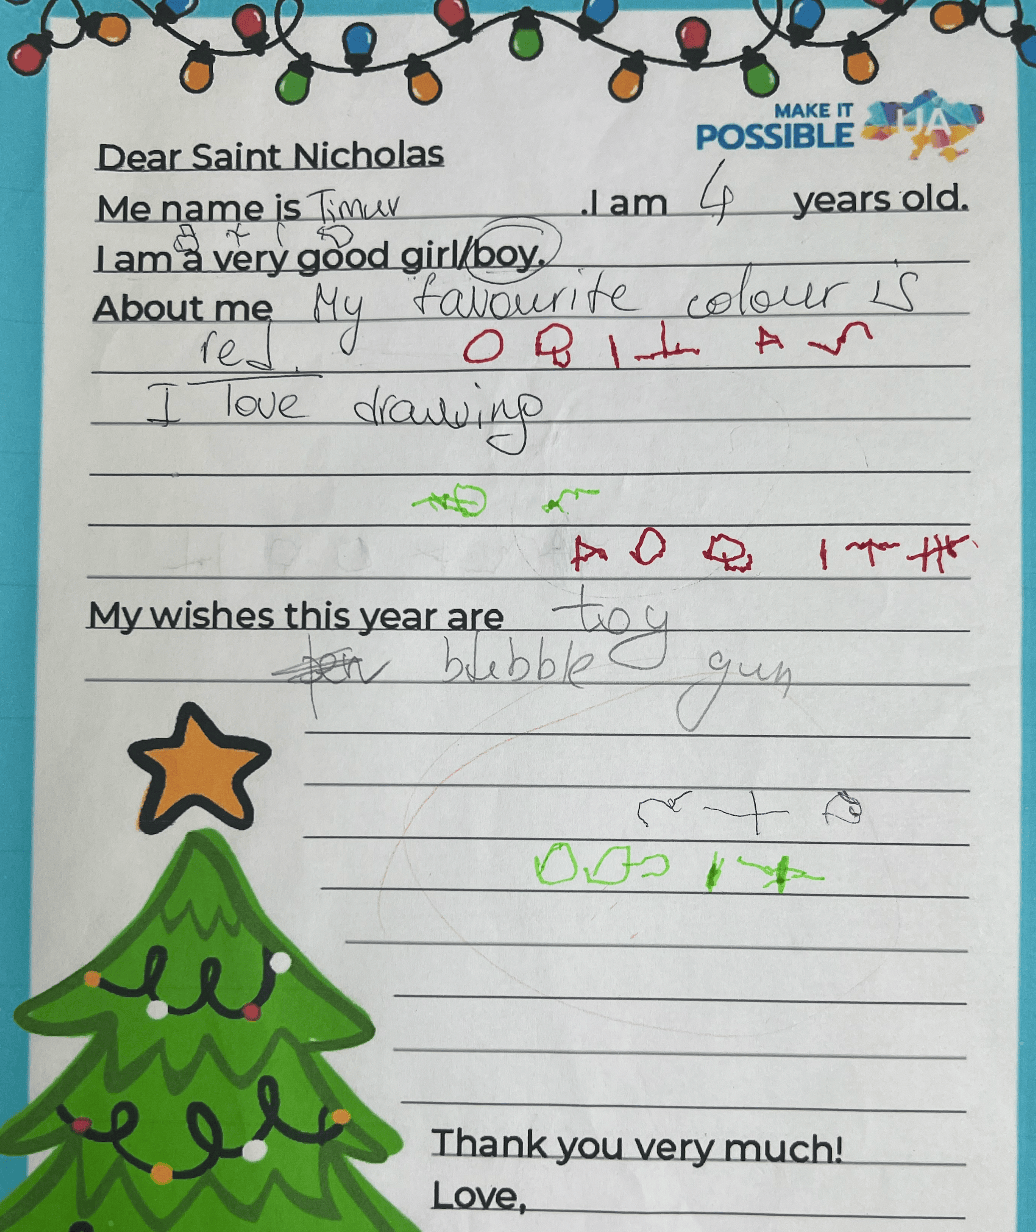 MAKE IT
POSSIBLE UA
Dear Saint Nicholas
Me name is Timur .I am 4 years old.
I am a very good girl/boy.
About me My favourite colour is
red.
I love drawing
My wishes this year are toy
bubble gun
Thank you very much!
Love,